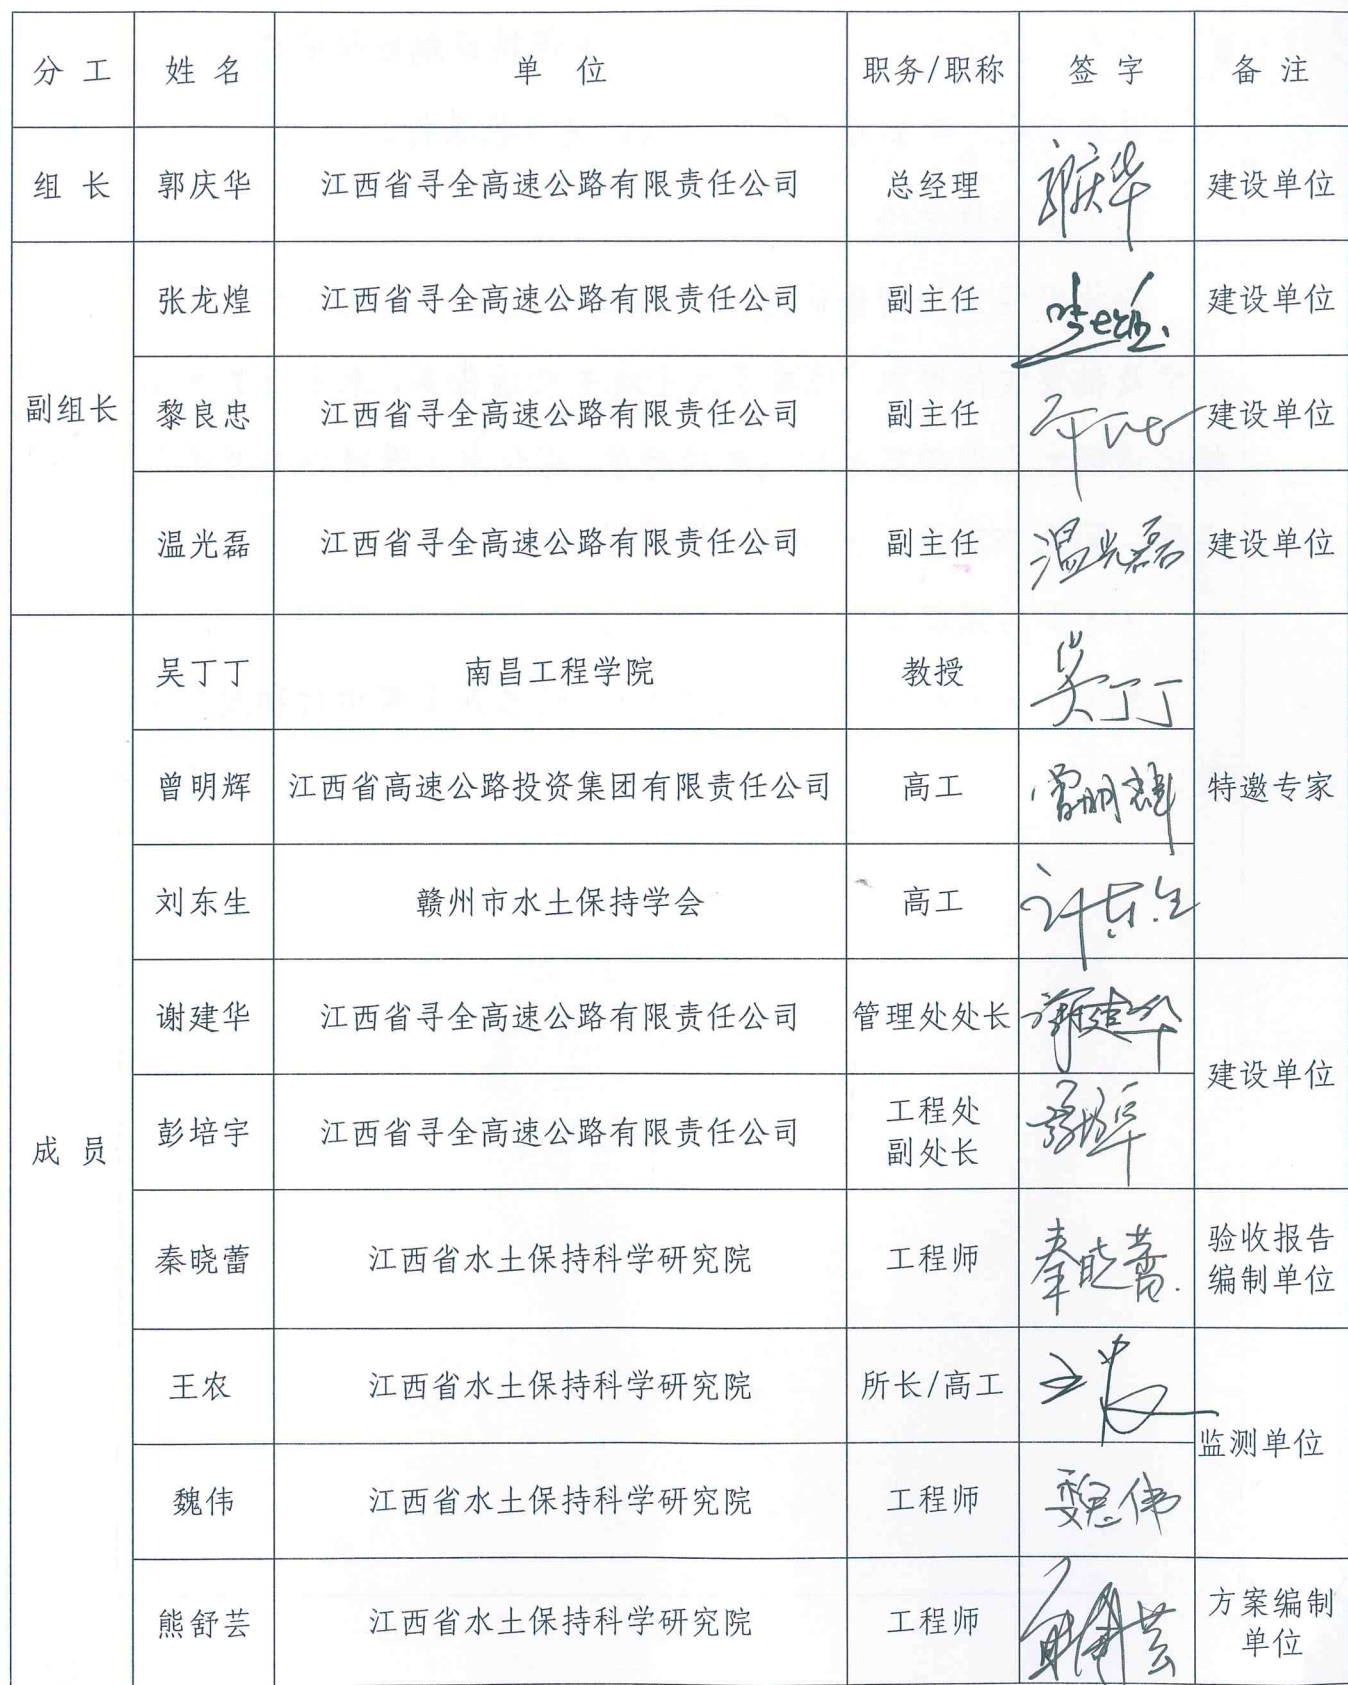 分 工 姓 名 单 位 职务/职称 签 字 备 注
组 长 郭庆华 江西省寻全高速公路有限责任公司 总经理 郭庆华 建设单位
张龙煌 江西省寻全高速公路有限责任公司 副主任 建设单位
副组长 黎良忠 江西省寻全高速公路有限责任公司 副主任 建设单位
温光磊 江西省寻全高速公路有限责任公司 副主任 温光磊 建设单位
吴丁丁 南昌工程学院 教授 吴丁丁
曾明辉 江西省高速公路投资集团有限责任公司 高工 曾明辉 特邀专家
刘东生 赣州市水土保持学会 高工 刘东生
谢建华 江西省寻全高速公路有限责任公司 管理处处长 谢建华
建设单位
成 员 彭培宇 江西省寻全高速公路有限责任公司 工程处
副处长
秦晓蕾 江西省水土保持科学研究院 工程师 秦晓蕾 验收报告
编制单位
王农 江西省水土保持科学研究院 所长/高工 王农
监测单位
魏伟 江西省水土保持科学研究院 工程师 魏伟
熊舒芸 江西省水土保持科学研究院 工程师 方案编制
单位